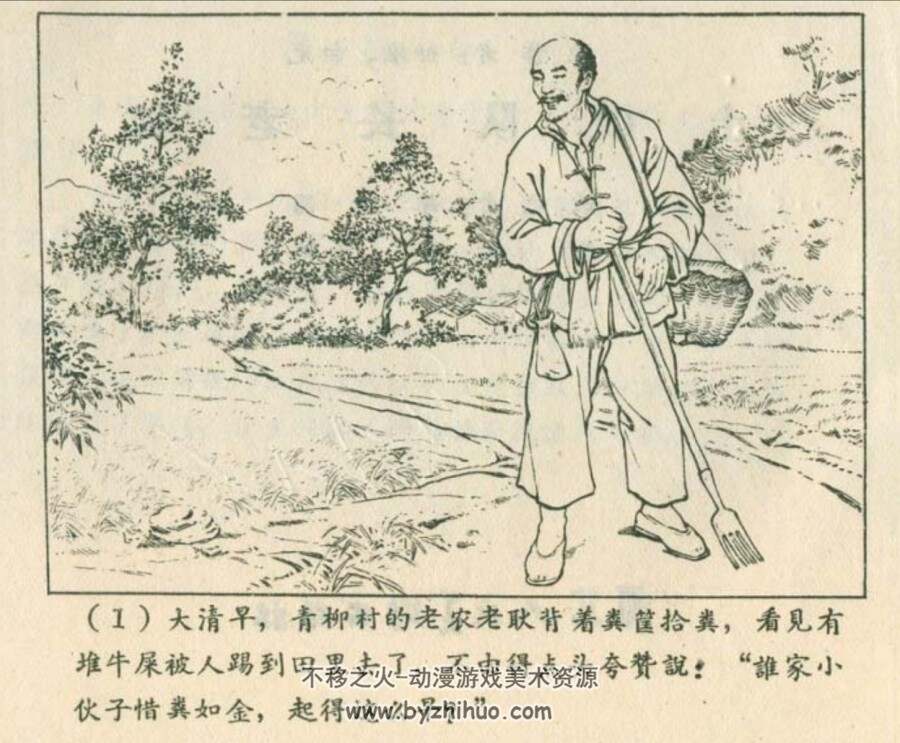 （1）大清早，青柳村的老农老耿背着粪筐拾粪，看見有
堆牛屎被人踢到田里去了，不由得点头夸赞說：“誰家小
不移之火-动漫游戏美术资源
伙子惜粪如金，起得
www.byzhihuo.com